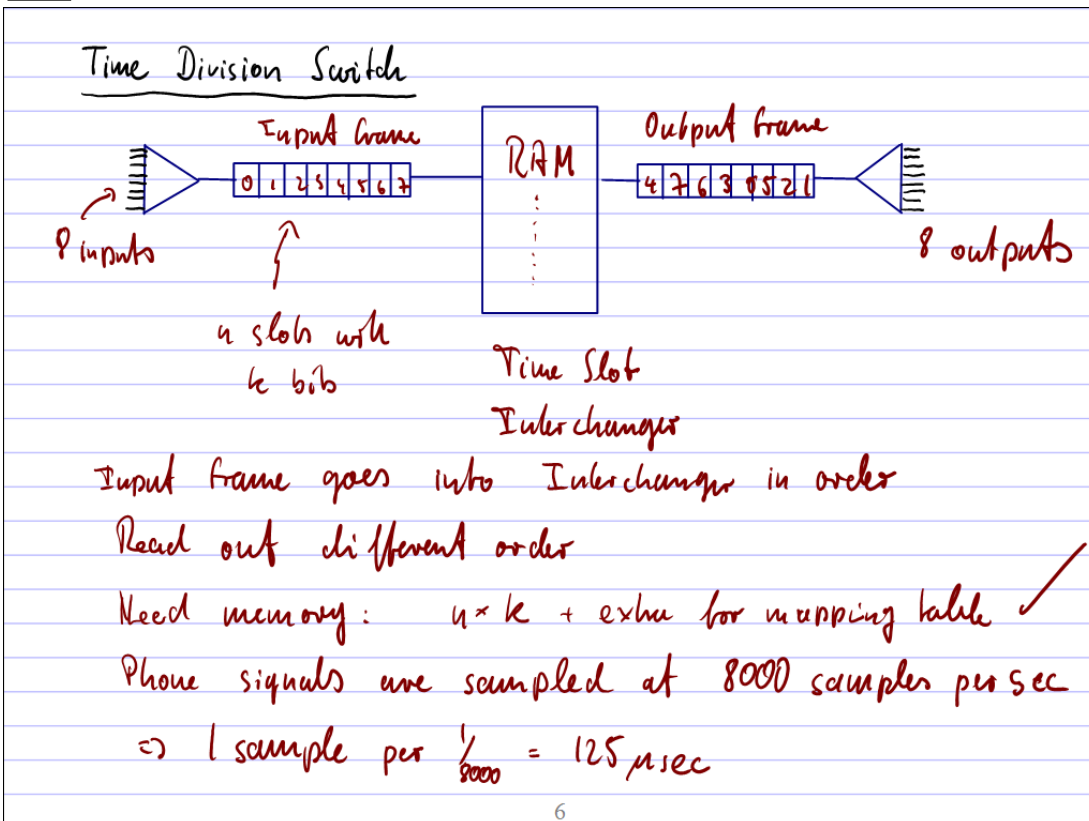 Time Division Switch
Input frame
RAM
Output frame
0 1 2 3 4 5 6 7
4 7 6 3 0 5 2 1
8 inputs
8 outputs
n slots with
k bits
Time Slot
Interchanger
Input frame goes into Interchanger in order
Read out different order
Need memory: n * k + extra for mapping table ✓
Phone signals are sampled at 8000 samples per sec
=> 1 sample per 1/8000 = 125 μsec
6